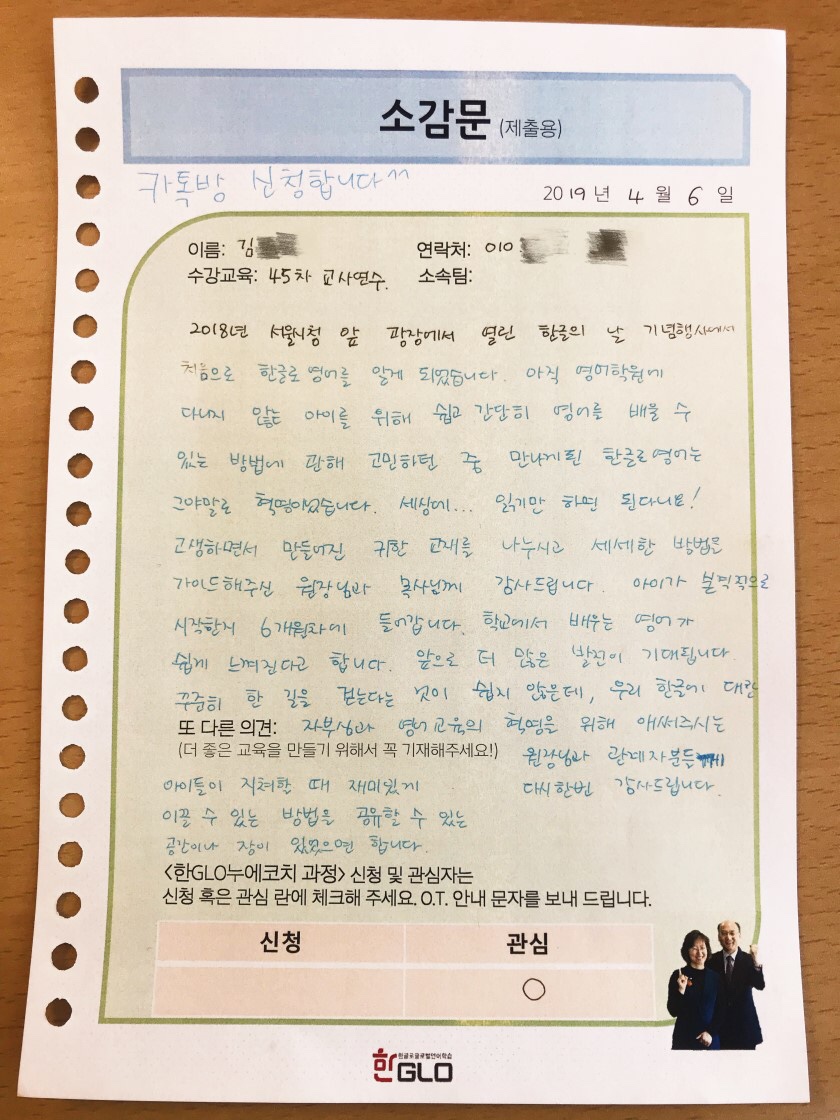 소감문 (제출용)
카톡방 신청합니다^^
2019년 4월 6일
이름: 김
연락처: 010
수강교육: 45차 교사연수.
소속팀:
2018년 서울시청 앞 광장에서 열린 한글의 날 기념행사에서
처음으로 한글로영어를 알게 되었습니다. 아직 영어학원에
다니지 않는 아이를 위해 쉽고 간단히 영어를 배울 수
있는 방법에 관해 고민하던 중 만나게된 한글로영어는
그야말로 혁명이었습니다. 세상에... 읽기만 하면 된다니요!
고생하면서 만들어진 귀한 교재를 나누시고 세세한 방법을
가이드해주신 원장님과 목사님께 감사드립니다. 아이가 본격적으로
시작한지 6개월차에 들어갑니다. 학교에서 배우는 영어가
쉽게 느껴진다고 합니다. 앞으로 더 많은 발전이 기대됩니다.
꾸준히 한 길을 걷는다는 것이 쉽지 않은데, 우리 한글에 대한
또 다른 의견: 자부심과 영어교육의 혁명을 위해 애써주시는
(더 좋은 교육을 만들기 위해서 꼭 기재해주세요!)
원장님과 관계자분들께
다시한번 감사드립니다.
아이들이 지쳐할 때 재미있게
이끌 수 있는 방법을 공유할 수 있는
공간이나 장이 있었으면 합니다.
<한GLO누에코치 과정> 신청 및 관심자는
신청 혹은 관심 란에 체크해 주세요. O.T. 안내 문자를 보내 드립니다.
신청 관심
○
한글로글로벌언어학습
한GLO